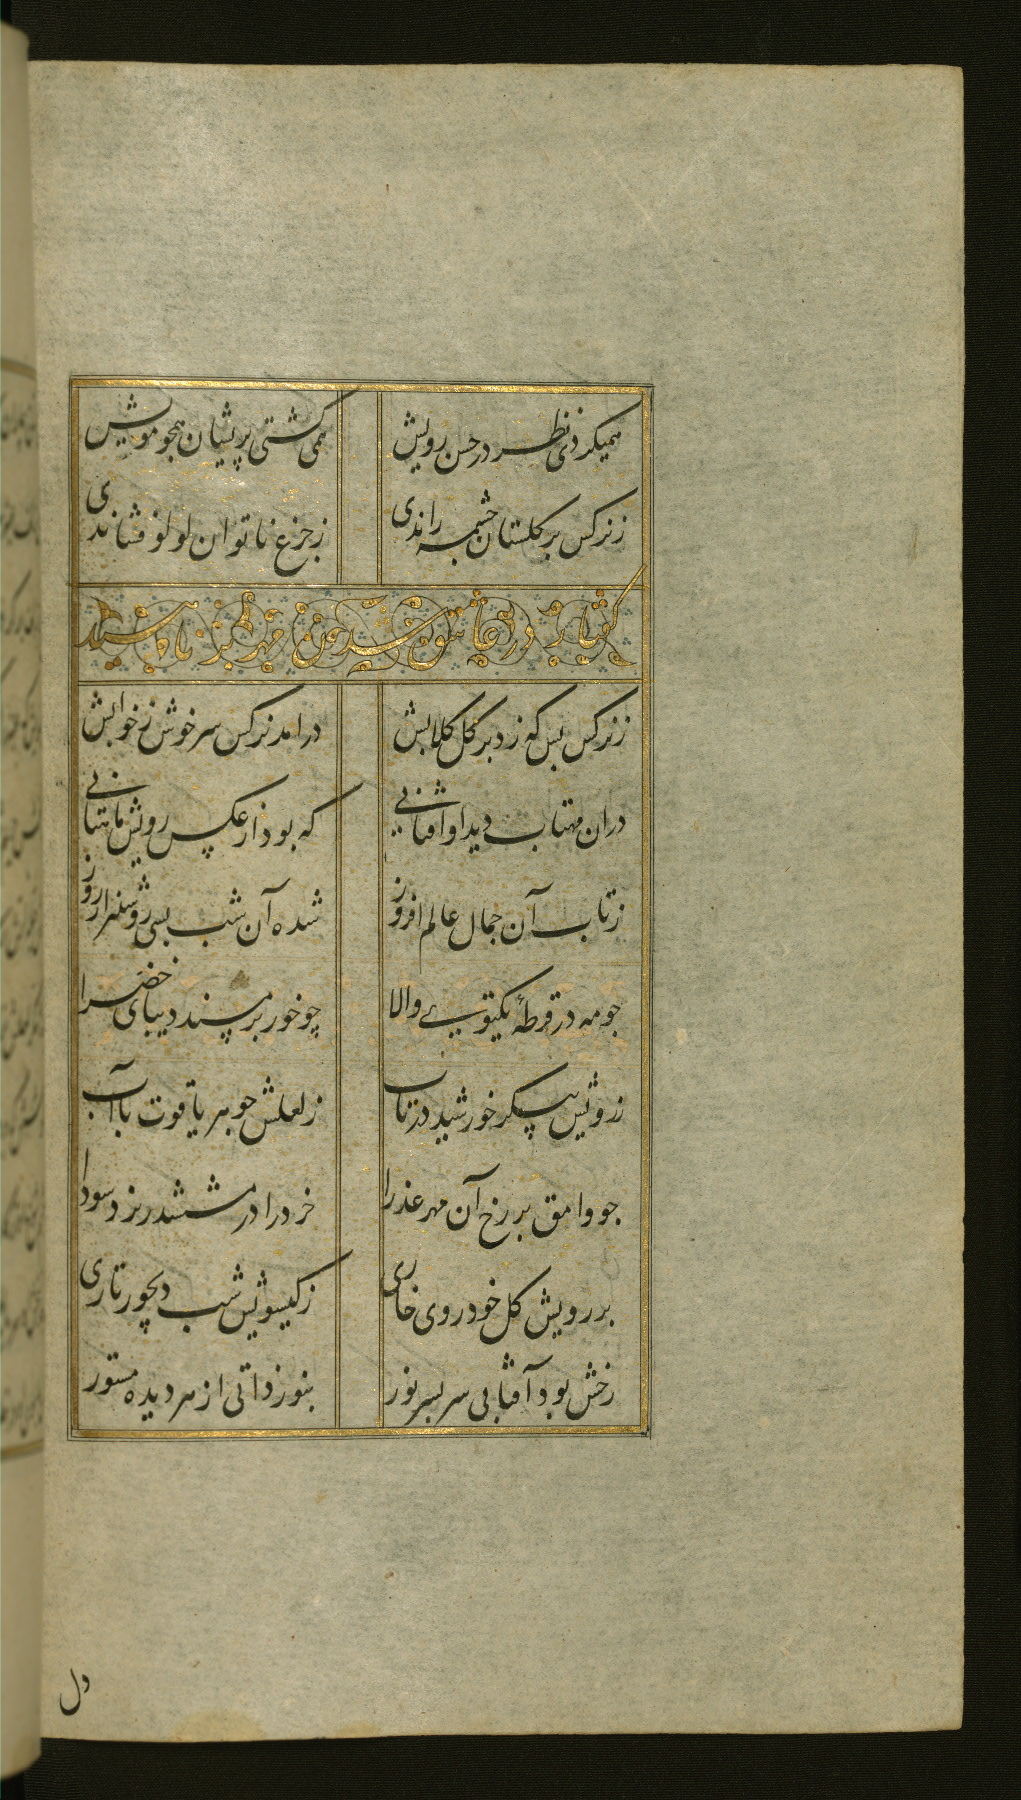 همیکردی نظر در حسن رویش همی گشتی پریشان همچو مویش
ز نرکس بر کلستان چشمه راندی ز جزع ناتوان لولو فشاندی
ز نرکس بس که زد بر کل کلابش درامد نرکس سرخوش ز خوابش
دران مهتاب دید او افتابی که بود از عکس رویش ماهتابی
ز تاب آن جمال عالم افروز شده آن شب بسی روشنتر از روز
چو مه در قرطهٔ یکتویی والا چو خور بر مسند دیبای خضرا
ز رویش پیکر خورشید در تاب ز لعلش جوهر یاقوت با آب
چو وامق بر رخ آن مهر عذرا خرد را در مششدر نرد سودا
بر رویش کل خودروی خاری ز کیسویش شب دیجور تاری
رخش بود آفتابی سربسر نور بنور ذاتی از هر دیده مستور
دل